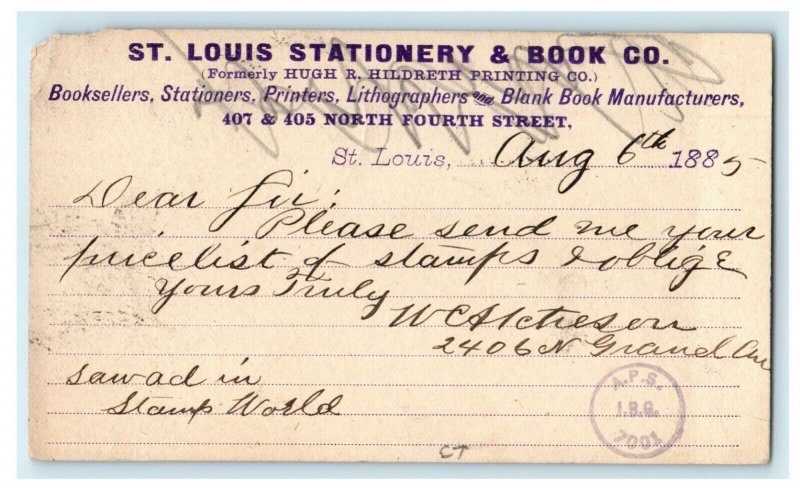 ST. LOUIS STATIONERY & BOOK CO.
(Formerly HUGH R. HILDRETH PRINTING CO.)
Booksellers, Stationers, Printers, Lithographers and Blank Book Manufacturers,
407 & 405 NORTH FOURTH STREET,
St. Louis, Aug 6th 1885
Dear Sir;
Please send me your
pricelist of stamps & oblige
Yours Truly
W C Atcheson
2406 N Grand Ave
saw ad in
Stamp World
A.P.S.
J.B.G.
7001
CT